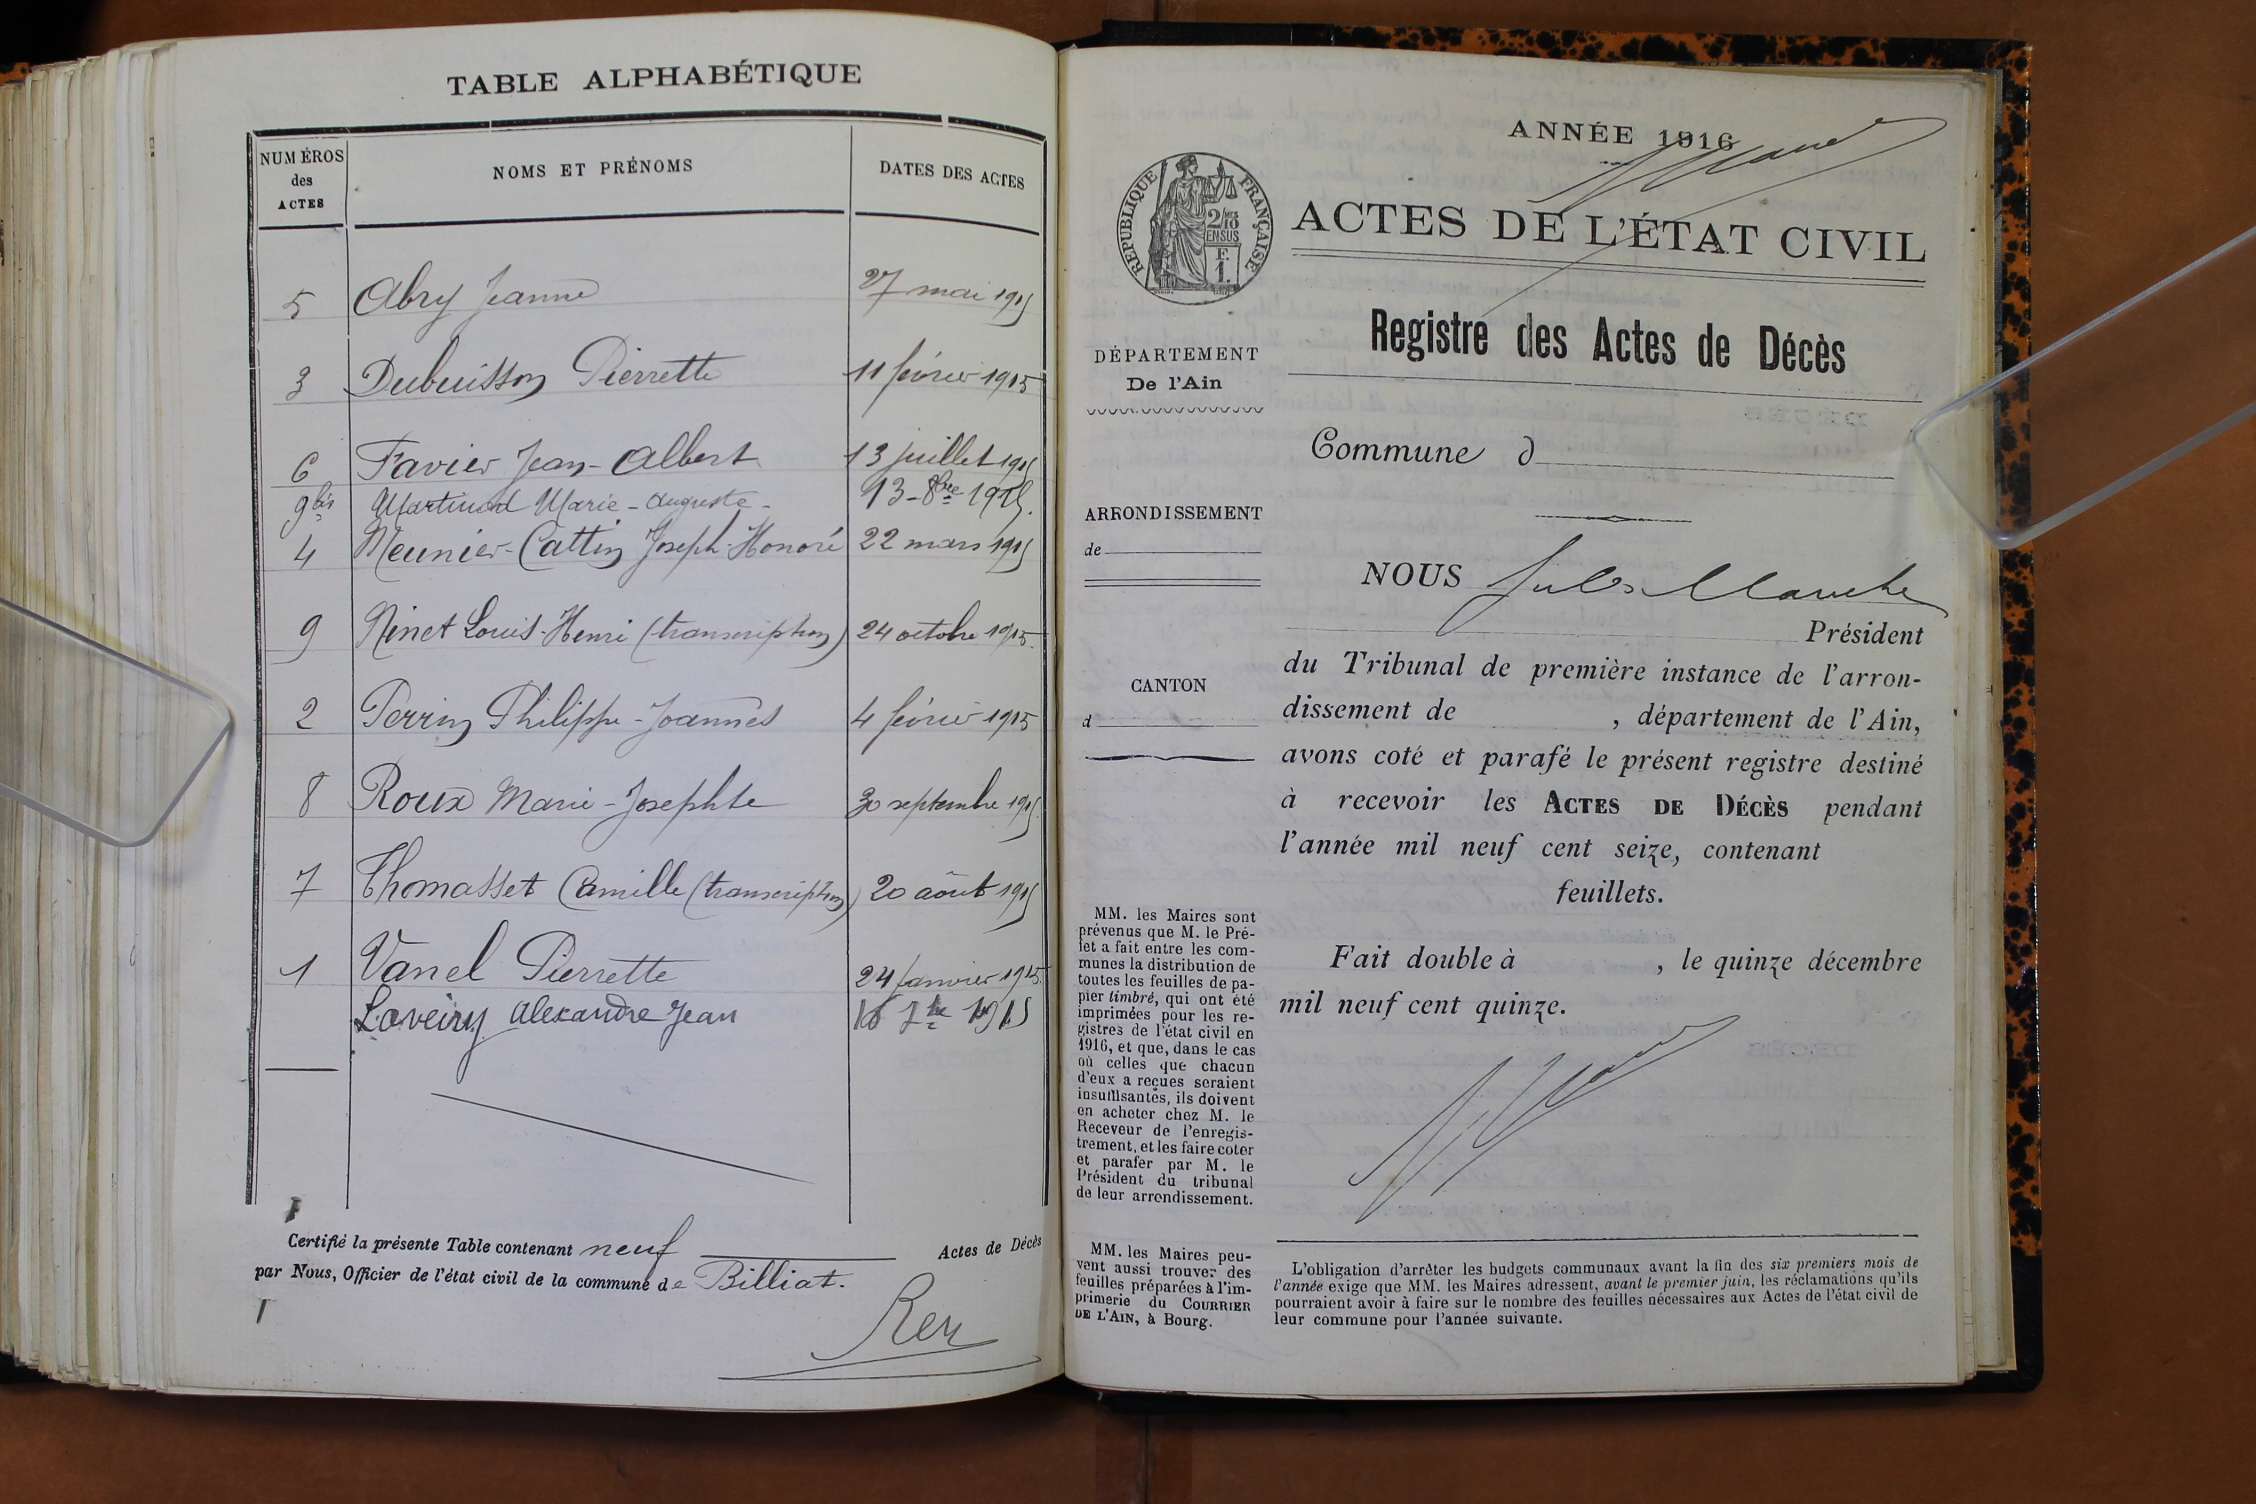 TABLE ALPHABÉTIQUE
NUMÉROS des ACTES
NOMS ET PRÉNOMS
DATES DES ACTES
5 Abry Jeanne 27 mai 1915
3 Dubuisson Pierrette 11 février 1915
6 Favier Jean-Albert 13 juillet 1915
9bis Martinod Marie-Auguste - 13-8bre 1915.
4 Meunier-Cattin Joseph-Honoré 22 mars 1915
9 Ninet Louis-Henri (transcription) 24 octobre 1915.
2 Perrin Philippe-Joannès 4 février 1915
8 Roux Marie-Josephte 30 septembre 1915
7 Thomasset Camille (transcription) 20 août 1915
1 Vanel Pierrette 24 janvier 1915
Alexandre Jean 1915
Certifié la présente Table contenant neuf Actes de Décès
par Nous, Officier de l'état civil de la commune de Billiat.
Rey
ANNÉE 1916
RÉPUBLIQUE FRANÇAISE
2/10
EN SUS
F.
1.
ACTES DE L'ÉTAT CIVIL
Registre des Actes de Décès
DÉPARTEMENT
De l'Ain
Commune d
ARRONDISSEMENT
de
CANTON
d
NOUS Jules
Président
du Tribunal de première instance de l'arron-
dissement de , département de l'Ain,
avons coté et parafé le présent registre destiné
à recevoir les ACTES DE DÉCÈS pendant
l'année mil neuf cent seize, contenant
feuillets.
Fait double à , le quinze décembre
mil neuf cent quinze.
MM. les Maires sont
prévenus que M. le Pré-
fet a fait entre les com-
munes la distribution de
toutes les feuilles de pa-
pier timbré, qui ont été
imprimées pour les re-
gistres de l'état civil en
1916, et que, dans le cas
où celles que chacun
d'eux a reçues seraient
insuffisantes, ils doivent
en acheter chez M. le
Receveur de l'enregis-
trement, et les faire coter
et parafer par M. le
Président du tribunal
de leur arrondissement.
MM. les Maires peu-
vent aussi trouver des
feuilles préparées à l'im-
primerie du COURRIER
DE L'AIN, à Bourg.
L'obligation d'arrêter les budgets communaux avant la fin des six premiers mois de
l'année exige que MM. les Maires adressent, avant le premier juin, les réclamations qu'ils
pourraient avoir à faire sur le nombre des feuilles nécessaires aux Actes de l'état civil de
leur commune pour l'année suivante.